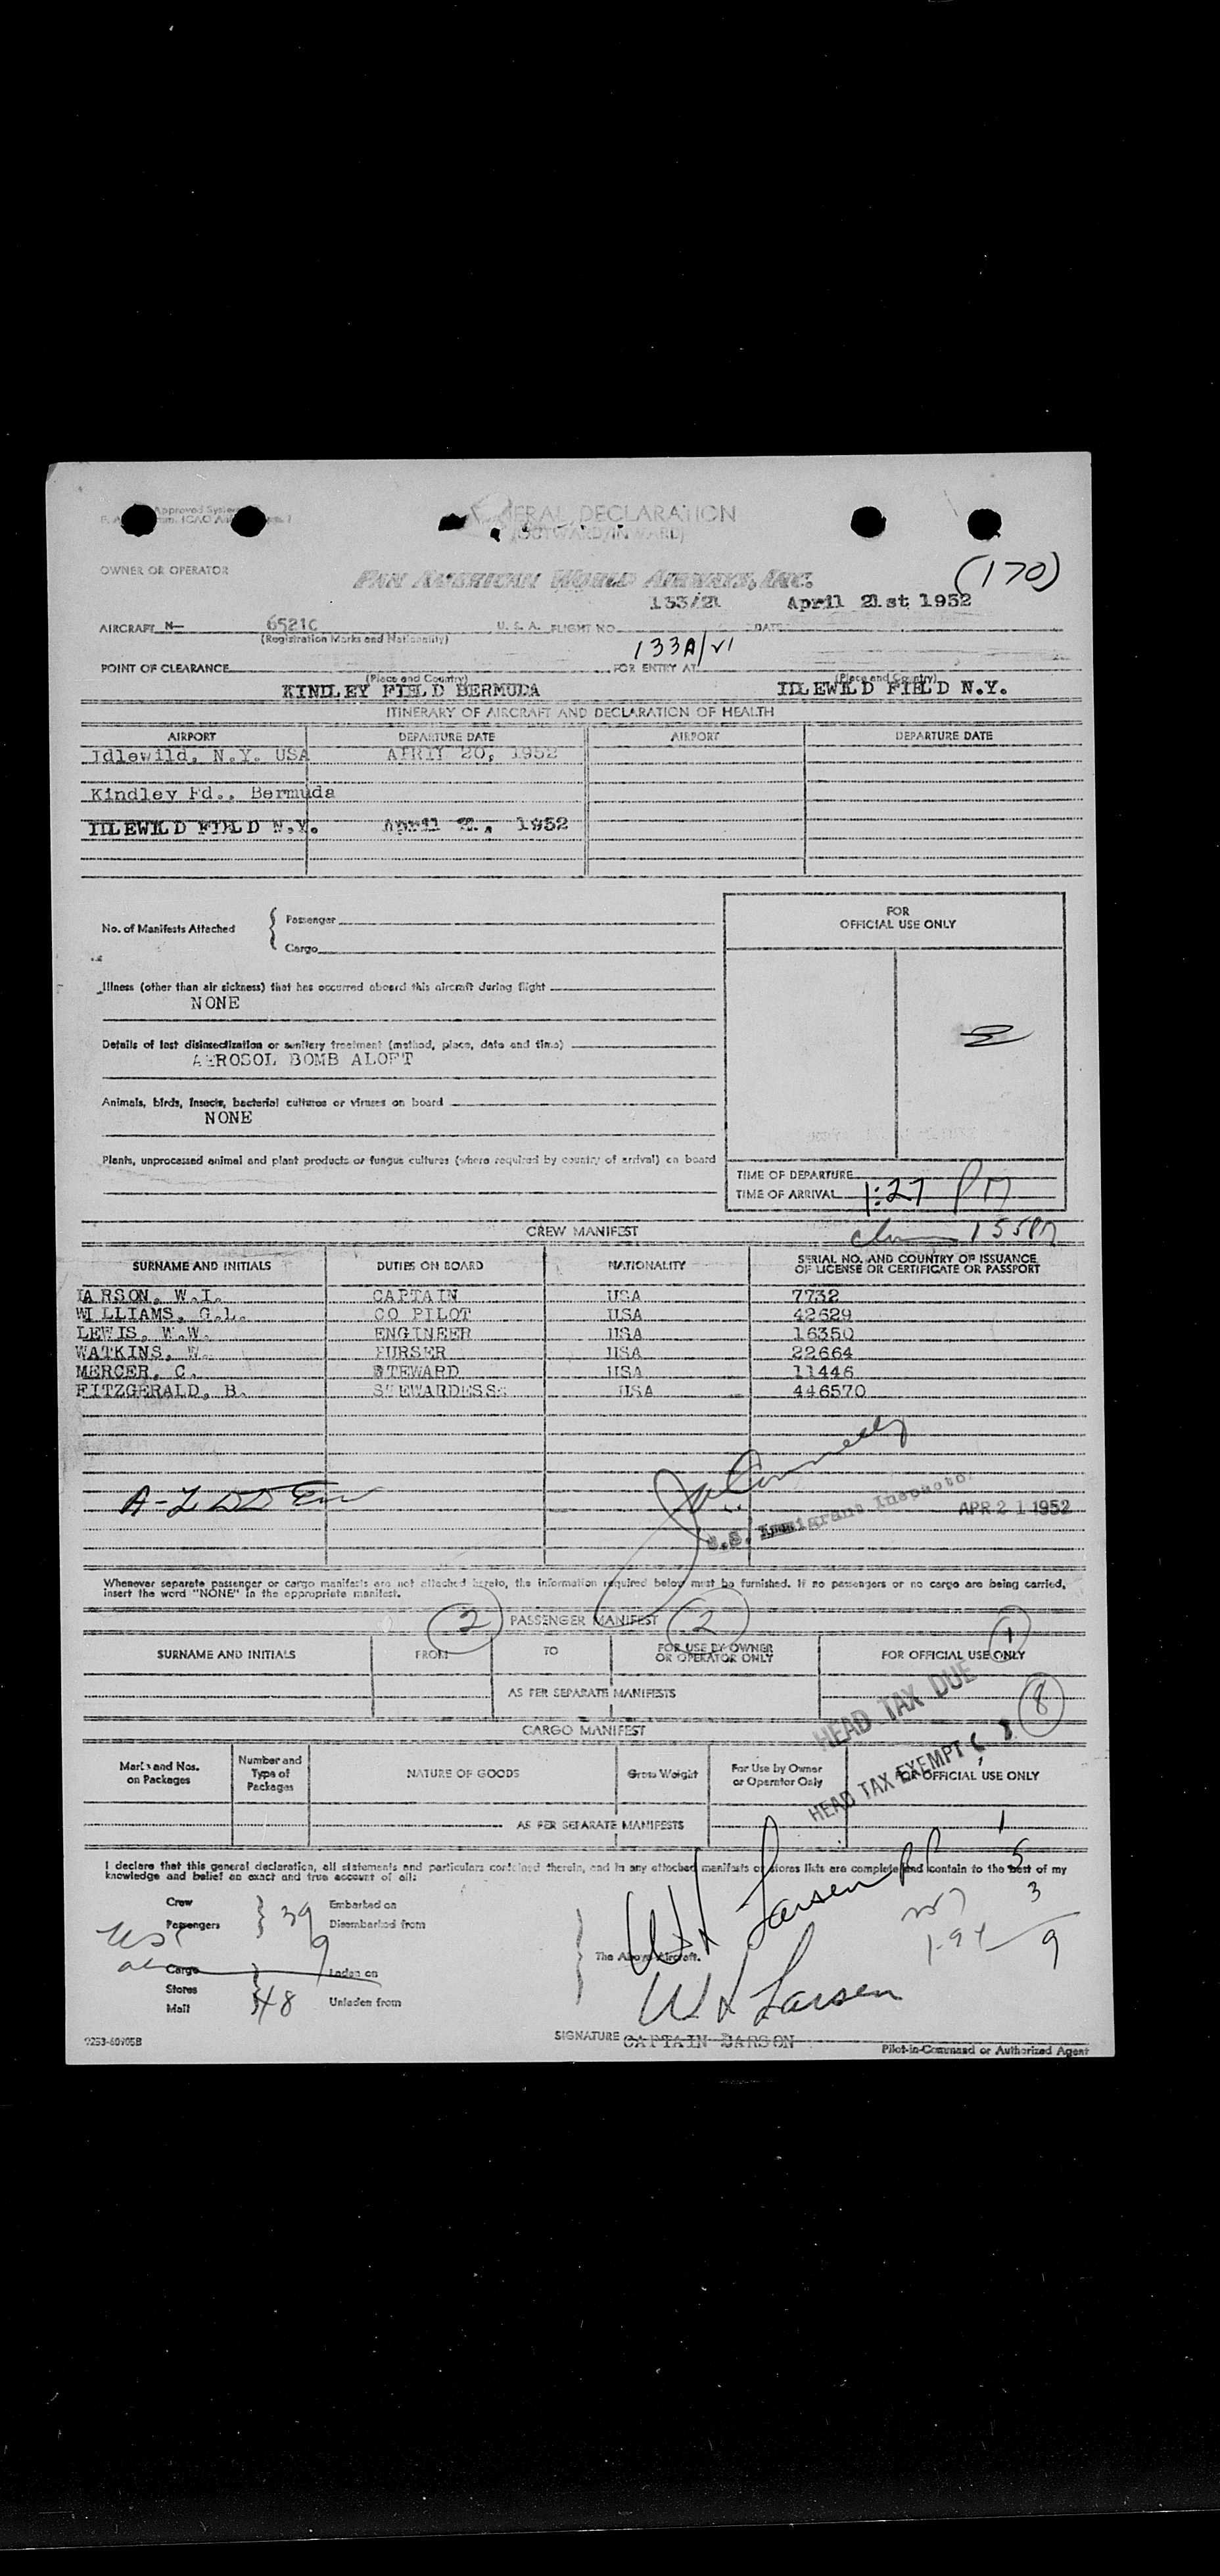 Approved System
ERAL DECLARATION
(OUTWARD/INWARD)
OWNER OR OPERATOR
PAN AMERICAN WORLD AIRWAYS, INC.
(170)
133/21 April 21st 1952
AIRCRAFT N- 6521C U. S. A. FLIGHT NO. DATE
(Registration Marks and Nationality)
133A/21
POINT OF CLEARANCE FOR ENTRY AT
(Place and Country) (Place and Country)
KINDLEY FIELD BERMUDA IDLEWILD FIELD N.Y.
ITINERARY OF AIRCRAFT AND DECLARATION OF HEALTH
AIRPORT DEPARTURE DATE AIRPORT DEPARTURE DATE
Idlewild, N.Y. USA APRIL 20, 1952
Kindley Fd., Bermuda
IDLEWILD FIELD N.Y. April 21, 1952
FOR
OFFICIAL USE ONLY
No. of Manifests Attached { Passenger
Cargo
Illness (other than air sickness) that has occurred aboard this aircraft during flight
NONE
Details of last disinsectization or sanitary treatment (method, place, date and time)
AEROSOL BOMB ALOFT
Animals, birds, insects, bacterial cultures or viruses on board
NONE
Plants, unprocessed animal and plant products or fungus cultures (where required by country of arrival) on board
TIME OF DEPARTURE
TIME OF ARRIVAL 1:27 PM
CREW MANIFEST
155PM
SURNAME AND INITIALS DUTIES ON BOARD NATIONALITY SERIAL NO. AND COUNTRY OF ISSUANCE
OF LICENSE OR CERTIFICATE OR PASSPORT
LARSON, W.I. CAPTAIN USA 7732
WILLIAMS, G.L. CO PILOT USA 42629
LEWIS, W.W. ENGINEER USA 16350
WATKINS, W. PURSER USA 22664
MERCER, C. STEWARD USA 11446
FITZGERALD, B. STEWARDESS USA 446570
U.S. Immigrant Inspector
APR 21 1952
Whenever separate passenger or cargo manifests are not attached hereto, the information required below must be furnished. If no passengers or no cargo are being carried,
insert the word "NONE" in the appropriate manifest.
2 PASSENGER MANIFEST 2
1
SURNAME AND INITIALS FROM TO FOR USE BY OWNER
OR OPERATOR ONLY FOR OFFICIAL USE ONLY
AS PER SEPARATE MANIFESTS
HEAD TAX DUE
8
CARGO MANIFEST
HEAD TAX EXEMPT
Marks and Nos.
on Packages Number and
Type of
Packages NATURE OF GOODS Gross Weight For Use by Owner
or Operator Only FOR OFFICIAL USE ONLY
AS PER SEPARATE MANIFESTS
1
5
3
9
I declare that this general declaration, all statements and particulars contained therein, and in any attached manifests or stores lists are complete and contain to the best of my
knowledge and belief an exact and true account of all:
Crew Embarked on
Passengers } 39 Disembarked from
9
The Above Aircraft.
Cargo Laden on
Stores
Mail } 48 Unladen from
W L Larsen
W L Larsen
SIGNATURE CAPTAIN LARSON
9253-60905B
Pilot-in-Command or Authorized Agent